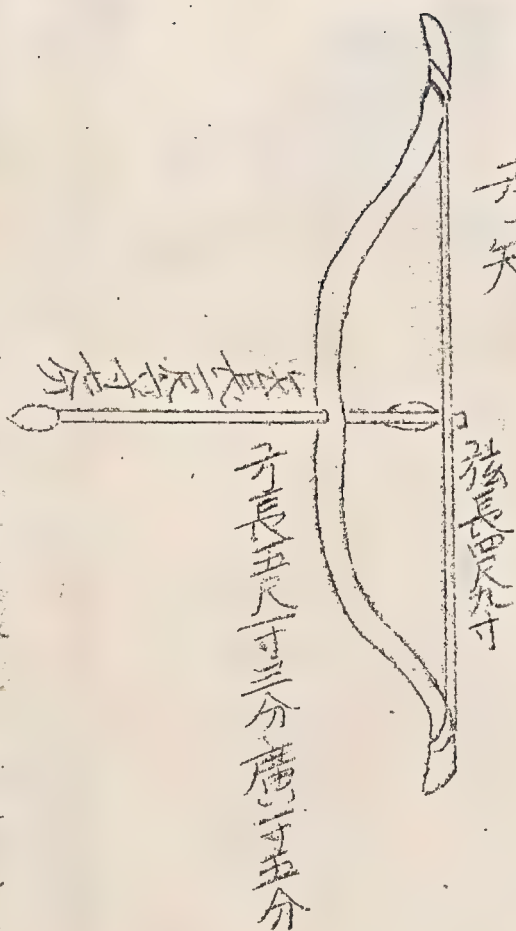 弓矢
弦長四尺九寸
弓長五尺一寸三分廣一寸五分
矢長一尺六寸七分